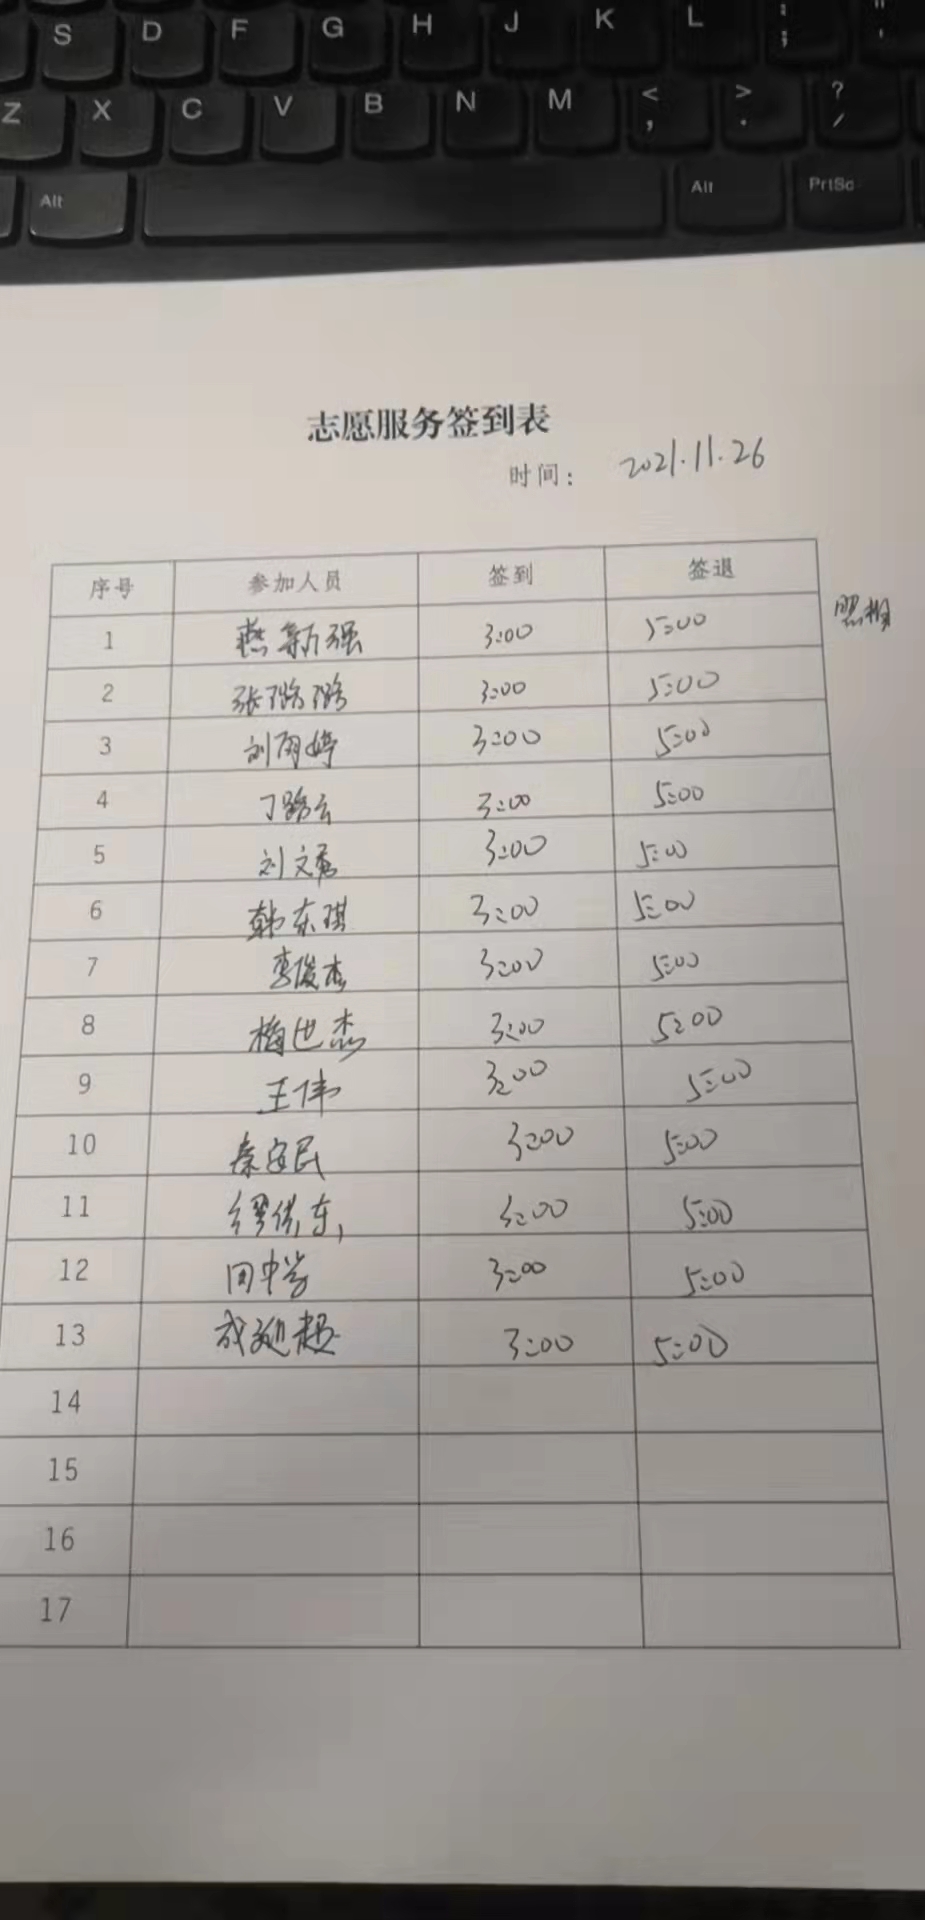 S D F G H J K L : ; " '
Z X C V B N M < , > . ? /
Alt Alt PrtSc
志愿服务签到表
时间: 2021.11.26
序号 参加人员 签到 签退
1 燕新强 3:00 5:00 照相
2 张璐璐 3:00 5:00
3 刘雨婷 3:00 5:00
4 丁路云 3:00 5:00
5 刘文秀 3:00 5:00
6 韩东琪 3:00 5:00
7 李俊杰 3:00 5:00
8 梅世杰 3:00 5:00
9 王伟 3:00 5:00
10 秦安民 3:00 5:00
11 3:00 5:00
12 田中学 3:00 5:00
13 成迎超 3:00 5:00
14
15
16
17